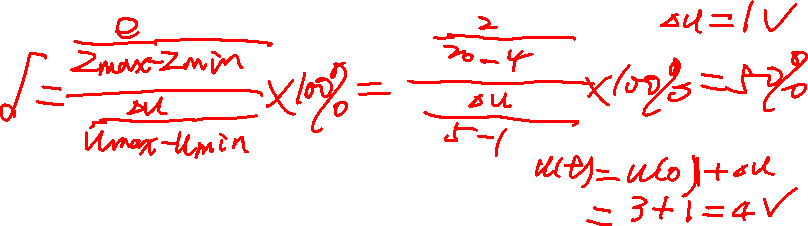 δ = (e / (Zmax - Zmin)) / (Δu / (umax - umin)) × 100% = (2 / (20 - 4)) / (Δu / (5 - 1)) × 100% = 50%
Δu = 1V
u(t) = u(0) + Δu
= 3 + 1 = 4V